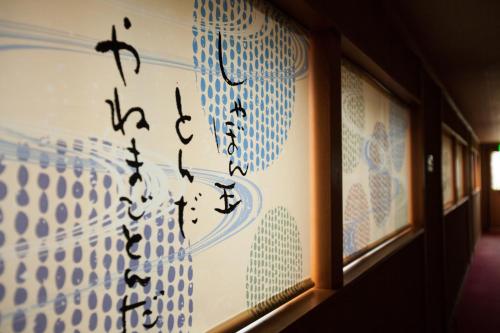 しゃぼん玉
とんだ
やねまでとんだ